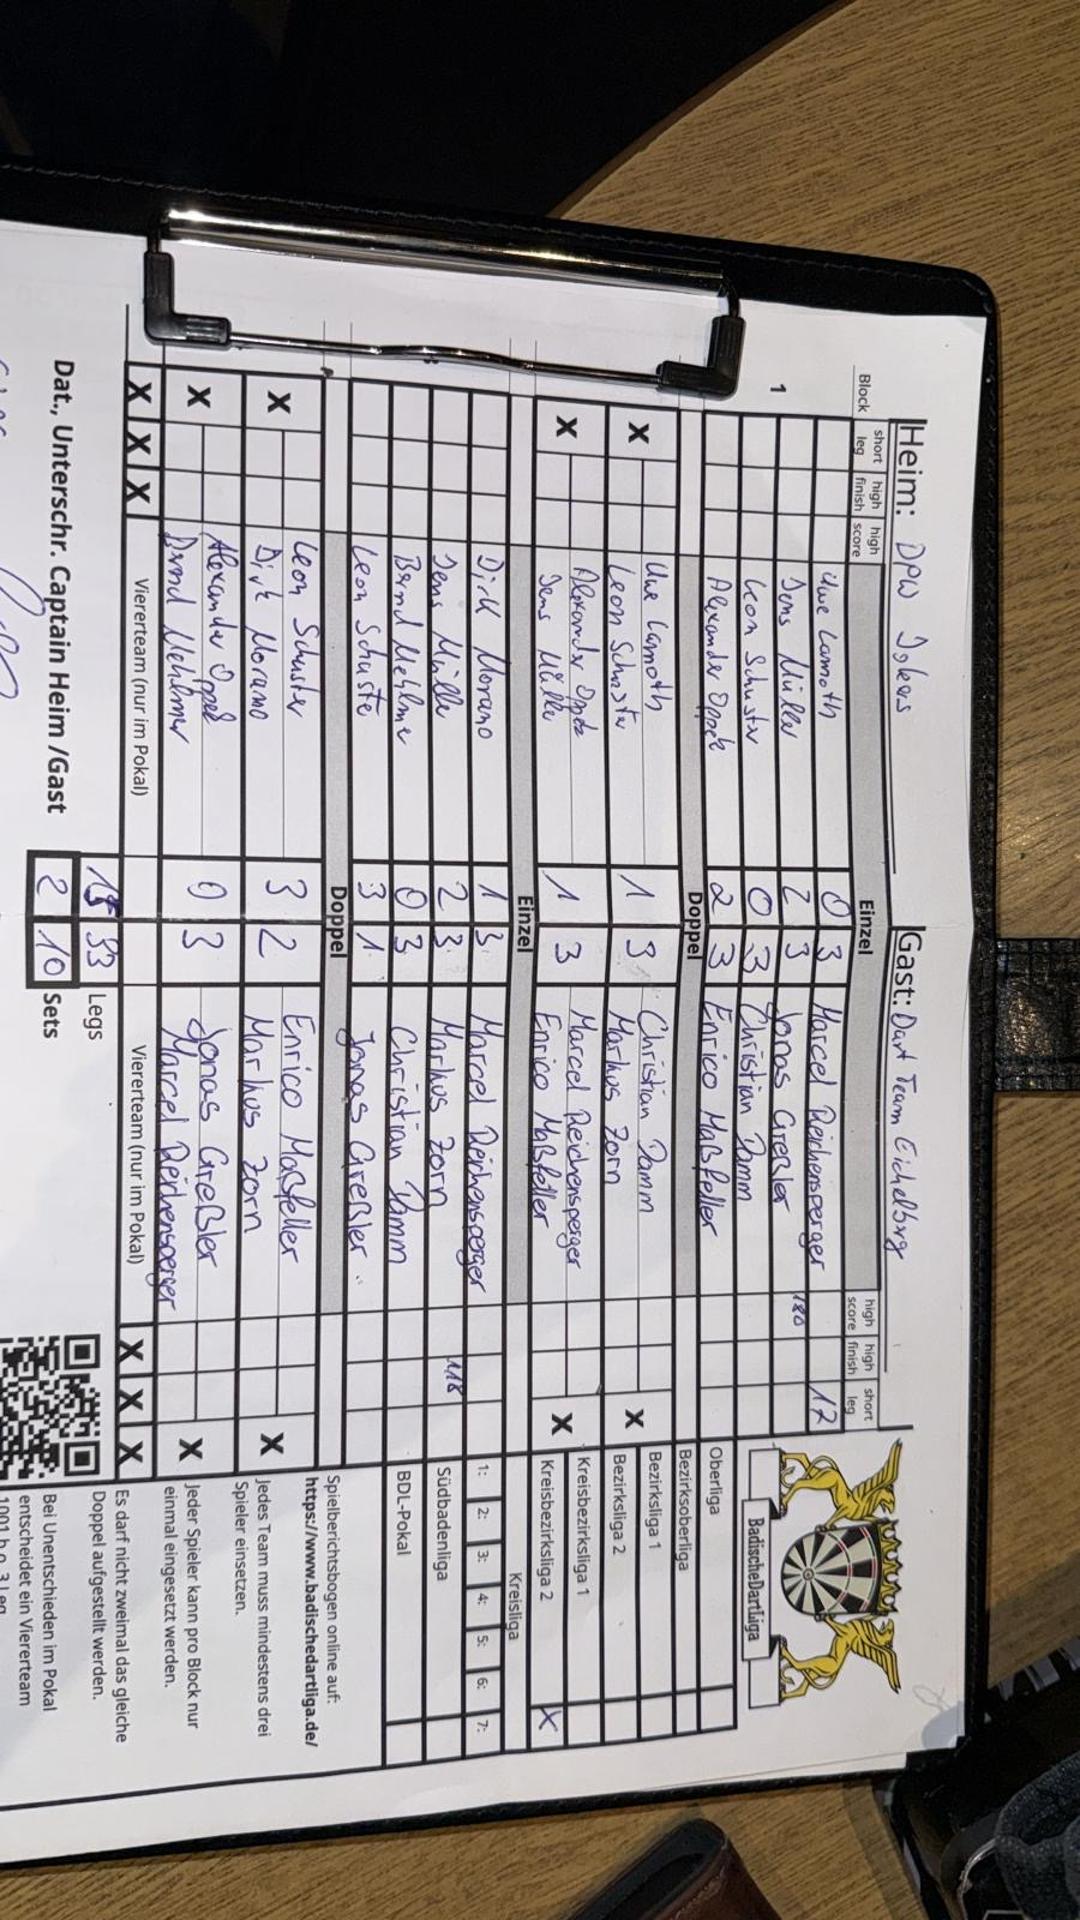 Heim: DPW Jokers Gast: Dart Team Eichelbrg
Block short leg high finish high score Einzel high score high finish short leg
1 Uwe Lamoth 0 3 Marcel Reichensperger 12
Jens Müller 2 3 Jonas Greßler 180
Leon Schuster 0 3 Christian Damm
Alexander Oppelt 2 3 Enrico Maßfeller
Doppel
X Uwe Lamoth 1 3 Christian Damm X
Leon Schuster Markus Zorn
X Alexander 1 3 Marcel Reichensperger X
Jens Müller Enrico Maßfeller
Einzel
Dirk Morano 1 3 Marcel Reichensperger
Jens Müller 2 3 Markus Zorn 118
Bernd Mehlmer 0 3 Christian Damm
Leon Schuster 3 1 Jonas Greßler
Doppel
X Leon Schuster 3 2 Enrico Maßfeller X
Dirk Morano Markus Zorn
X Alexander 0 3 Jonas Greßler X
Mehlmer Marcel Reichensperger
X X X Viererteam (nur im Pokal) Viererteam (nur im Pokal) X X X
15 33 Legs
Dat., Unterschr. Captain Heim /Gast 2 10 Sets
BadischeDartLiga
Oberliga
Bezirksoberliga
Bezirksliga 1
Bezirksliga 2
Kreisbezirksliga 1
Kreisbezirksliga 2 X
Kreisliga
1: 2: 3: 4: 5: 6: 7:
Südbadenliga
BDL-Pokal
Spielberichtsbogen online auf:
https://www.badischedartliga.de/
Jedes Team muss mindestens drei
Spieler einsetzen.
Jeder Spieler kann pro Block nur
einmal eingesetzt werden.
Es darf nicht zweimal das gleiche
Doppel aufgestellt werden.
Bei Unentschieden im Pokal
entscheidet ein Viererteam
1001 b.o. 3 Leg